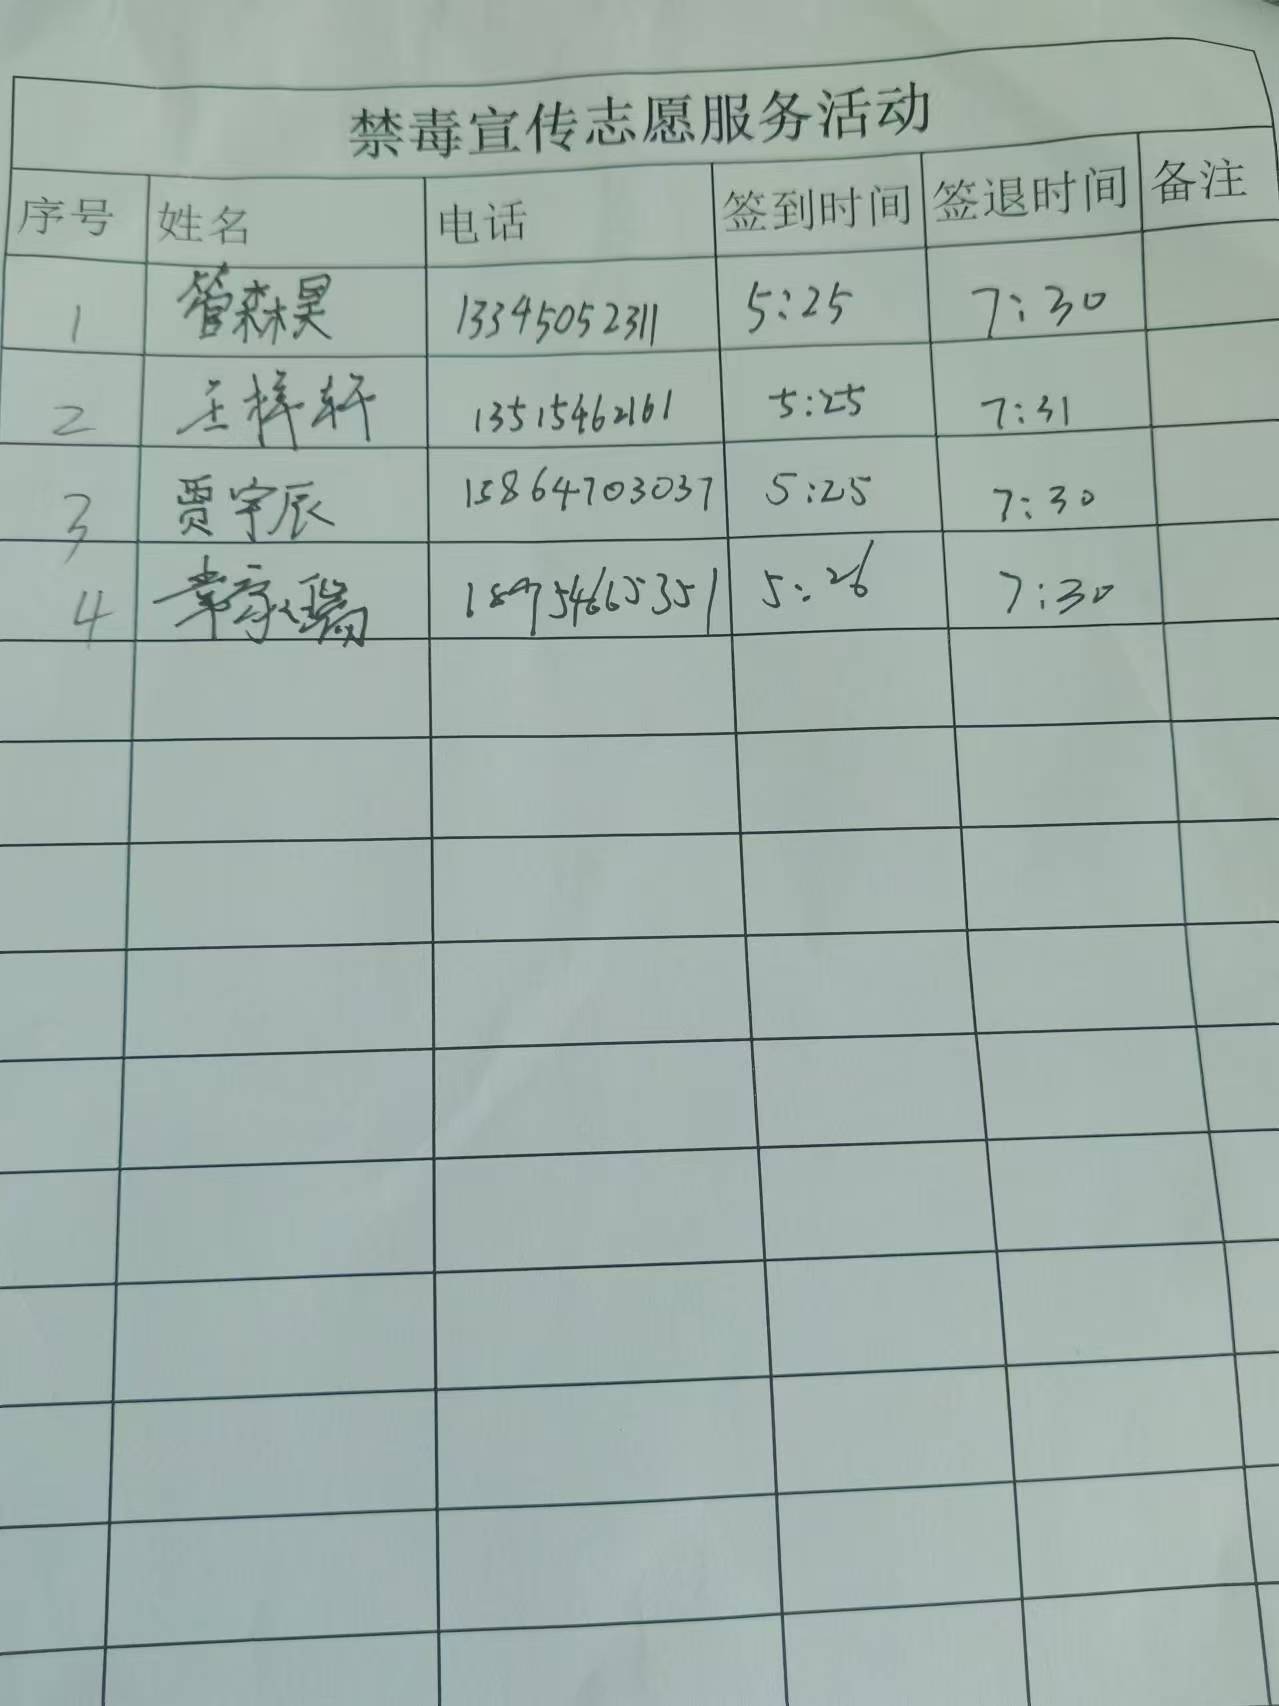 禁毒宣传志愿服务活动
序号 姓名 电话 签到时间 签退时间 备注
1 管森昊 13345052311 5:25 7:30
2 王梓轩 13515462161 5:25 7:31
3 贾宇辰 15864703037 5:25 7:30
4 5:26 7:30